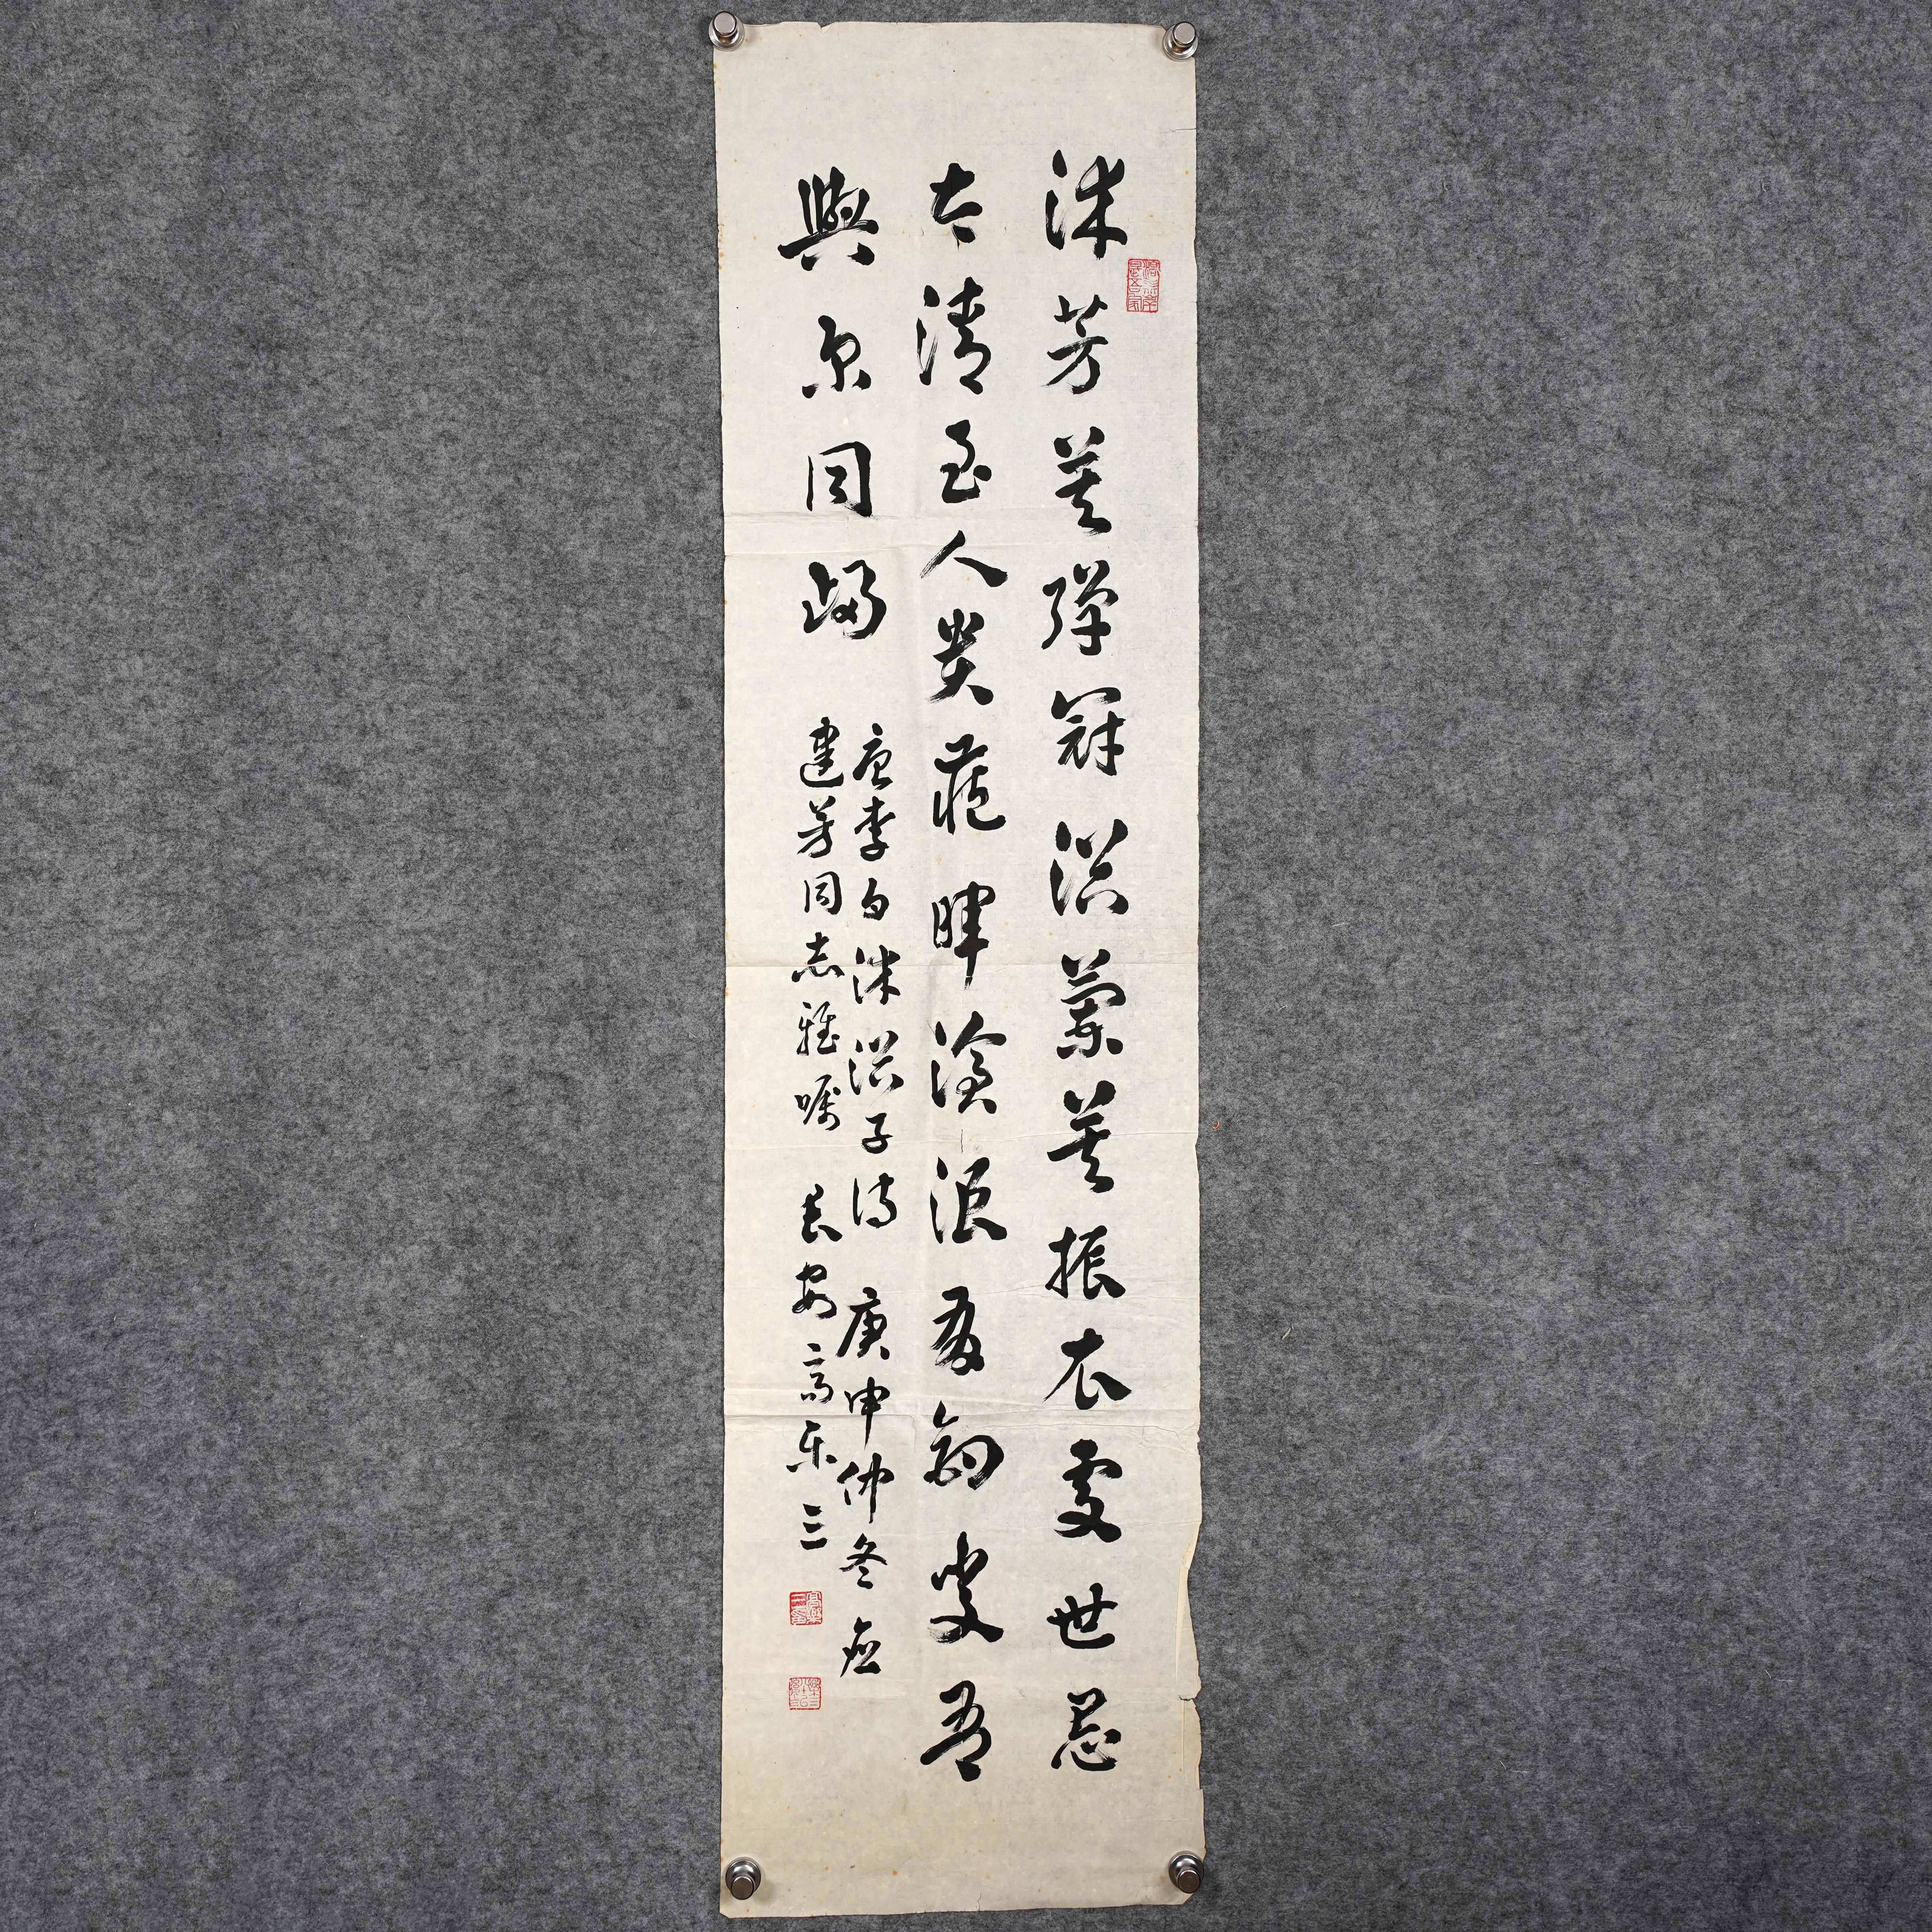 沐芳莫弹冠浴蘭莫振衣處世忌
太清至人贵藏暉滄浪有釣叟吾
與尔同歸
唐李白沐浴子诗 庚申仲冬应
建芳同志雅嘱 長安高乐三